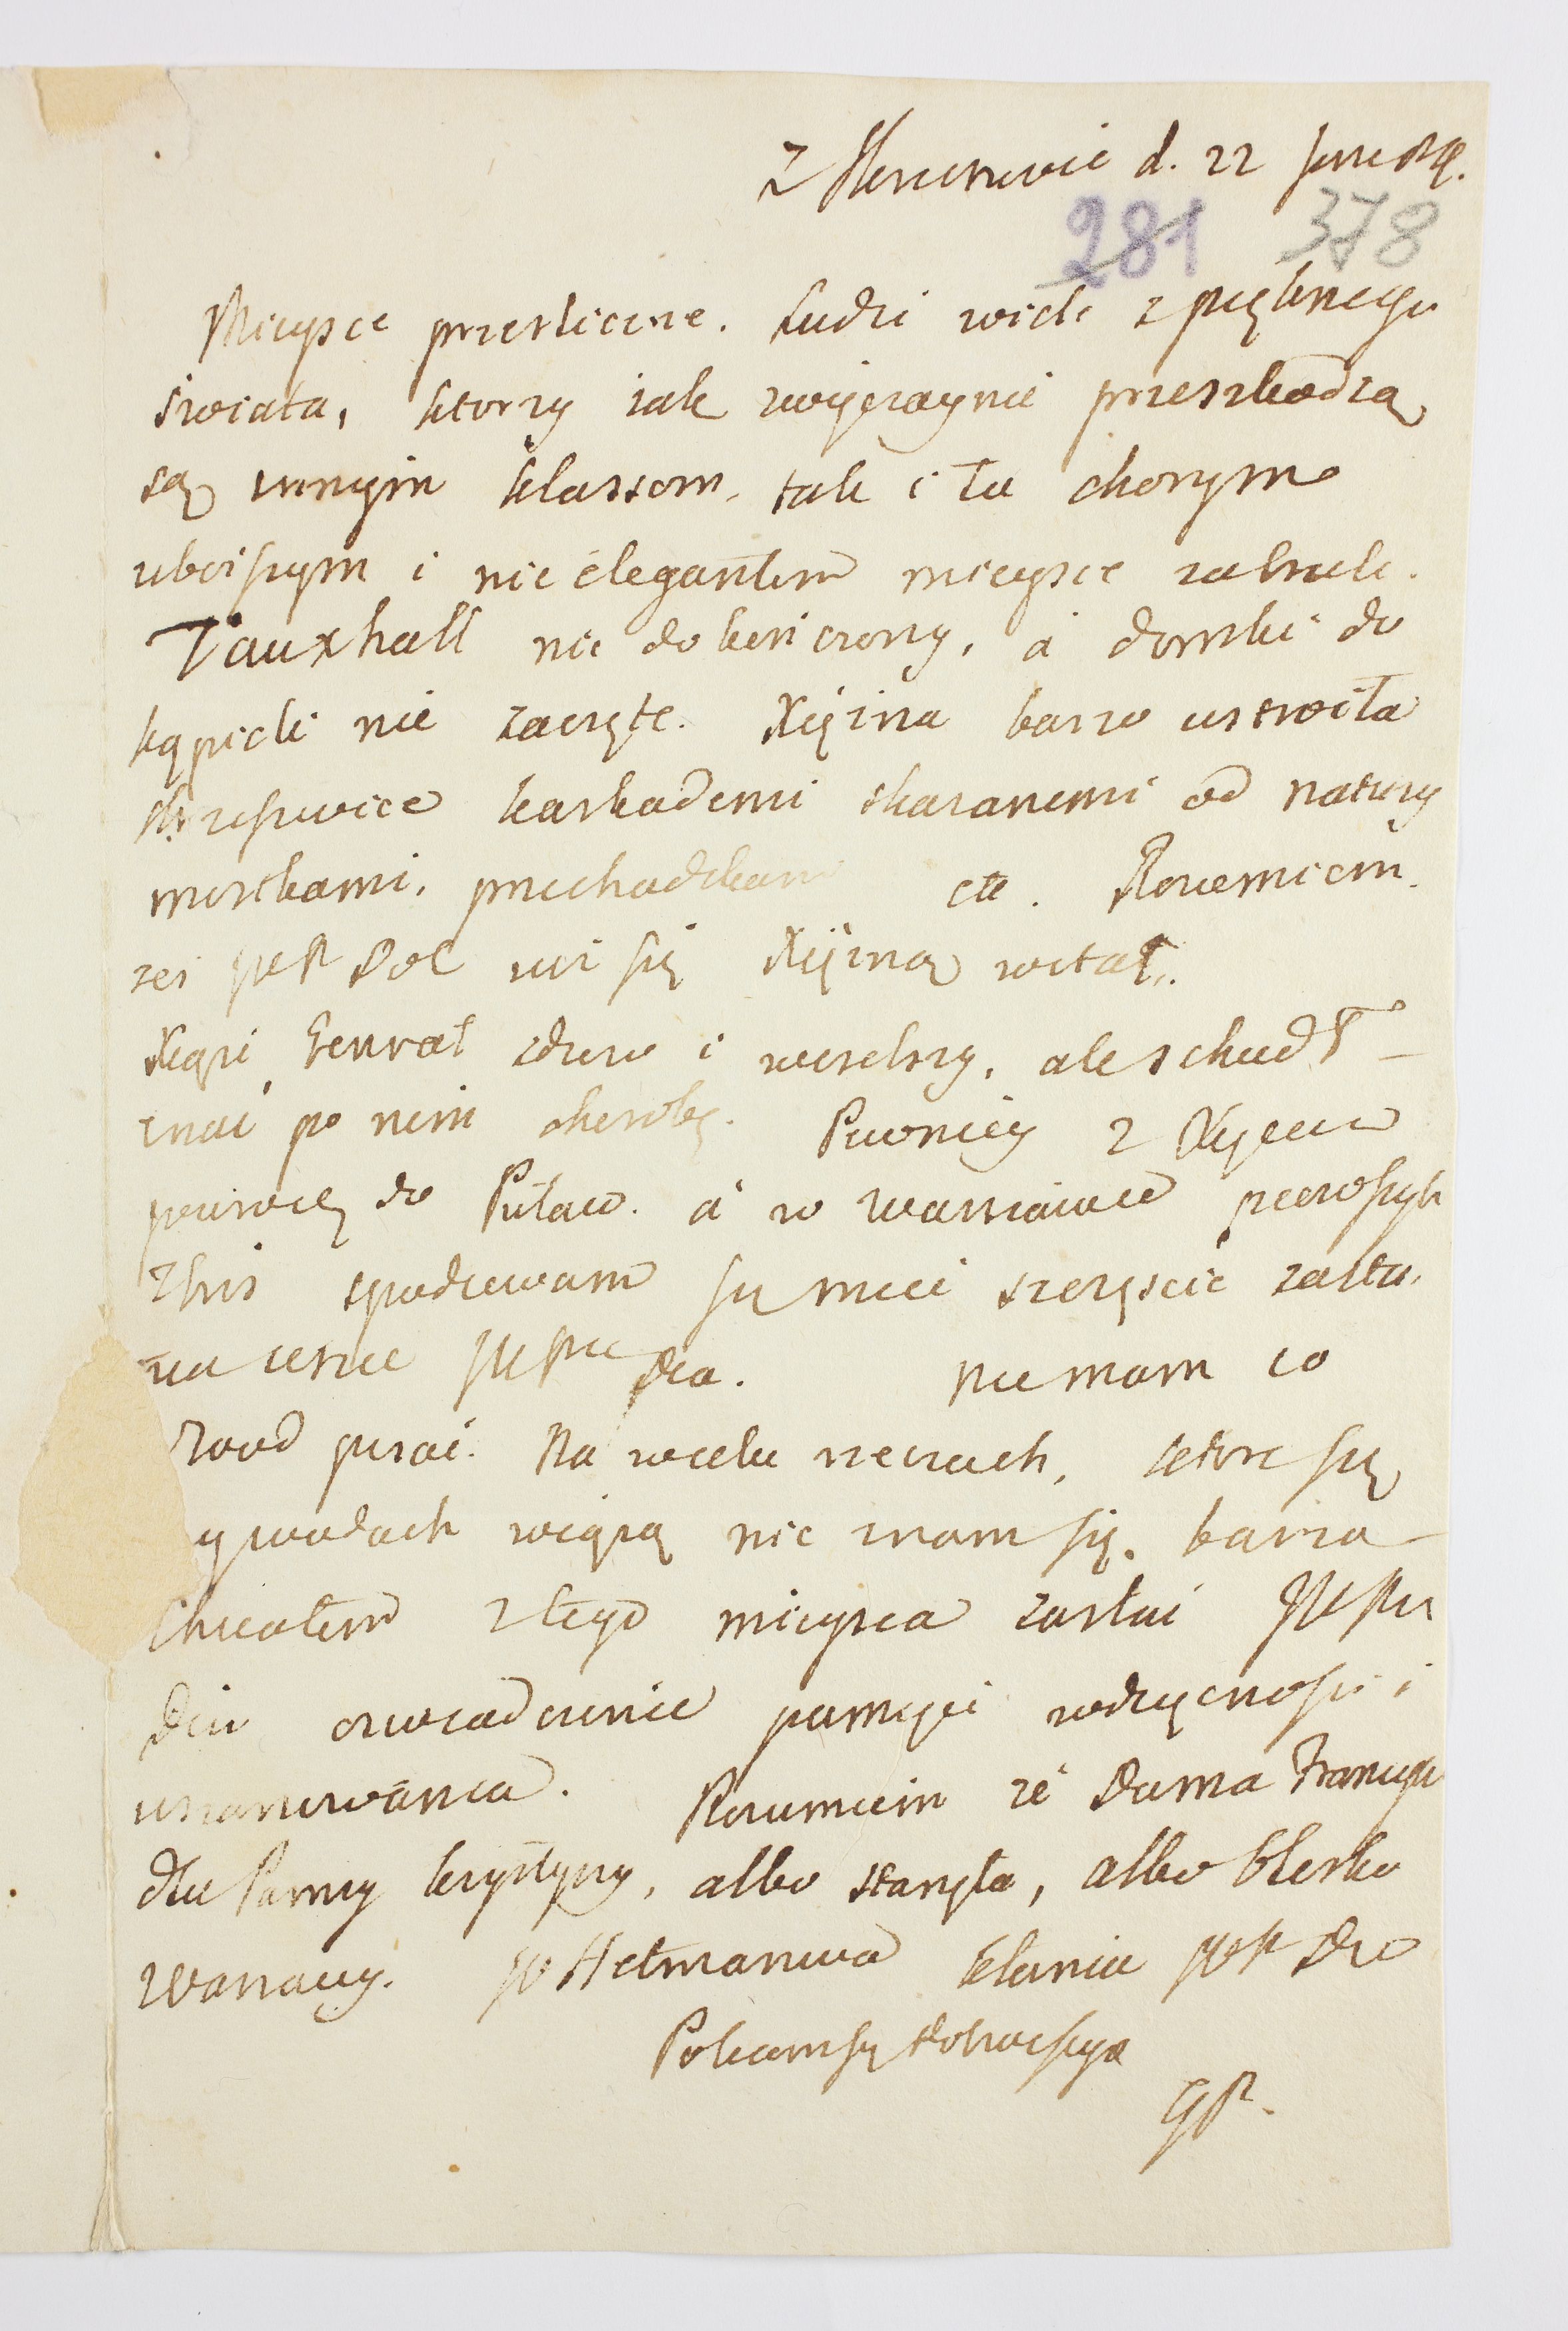 Z d. 22
281 378
Mieysce przesliczne. Ludzi wiele z pięknego
świata, ktorzy iak zwyczaynie przeszkodzą
są innym klassom, tak i tu chorym
uboiszym i nie elegantom mieysce zabrali.
Vauxhall nie dokończony, a domki do
kąpieli nie zaczęte. Xiężna barzo ustroiła
Krzeszowice kaskadami od natury
mostkami, przechadzkami etc. Rozumiem
żeś Xiężną witał.
Xiąże Generał zdrow i weselszy, ale schudł –
znać po nim chorobę. Pewniey z Xięciem
powrocę do Puław. a w Warszawie
spodziewam się mieć szczęście
Dza. nie mam co
wod pisać. Na wielu rzeczach, ktore się
wodach wiążą nie znam się. barzo
Chciałem z tego mieysca zasłać
Dziu oswiadczenie pamięci wdzięcznosci i
uszanowania. Rozumiem że Dama
dla Panny krystyny, albo stanęła, albo blisko
Warszawy. JP Hetmanowa kłania Dza
Polecam się
GP.